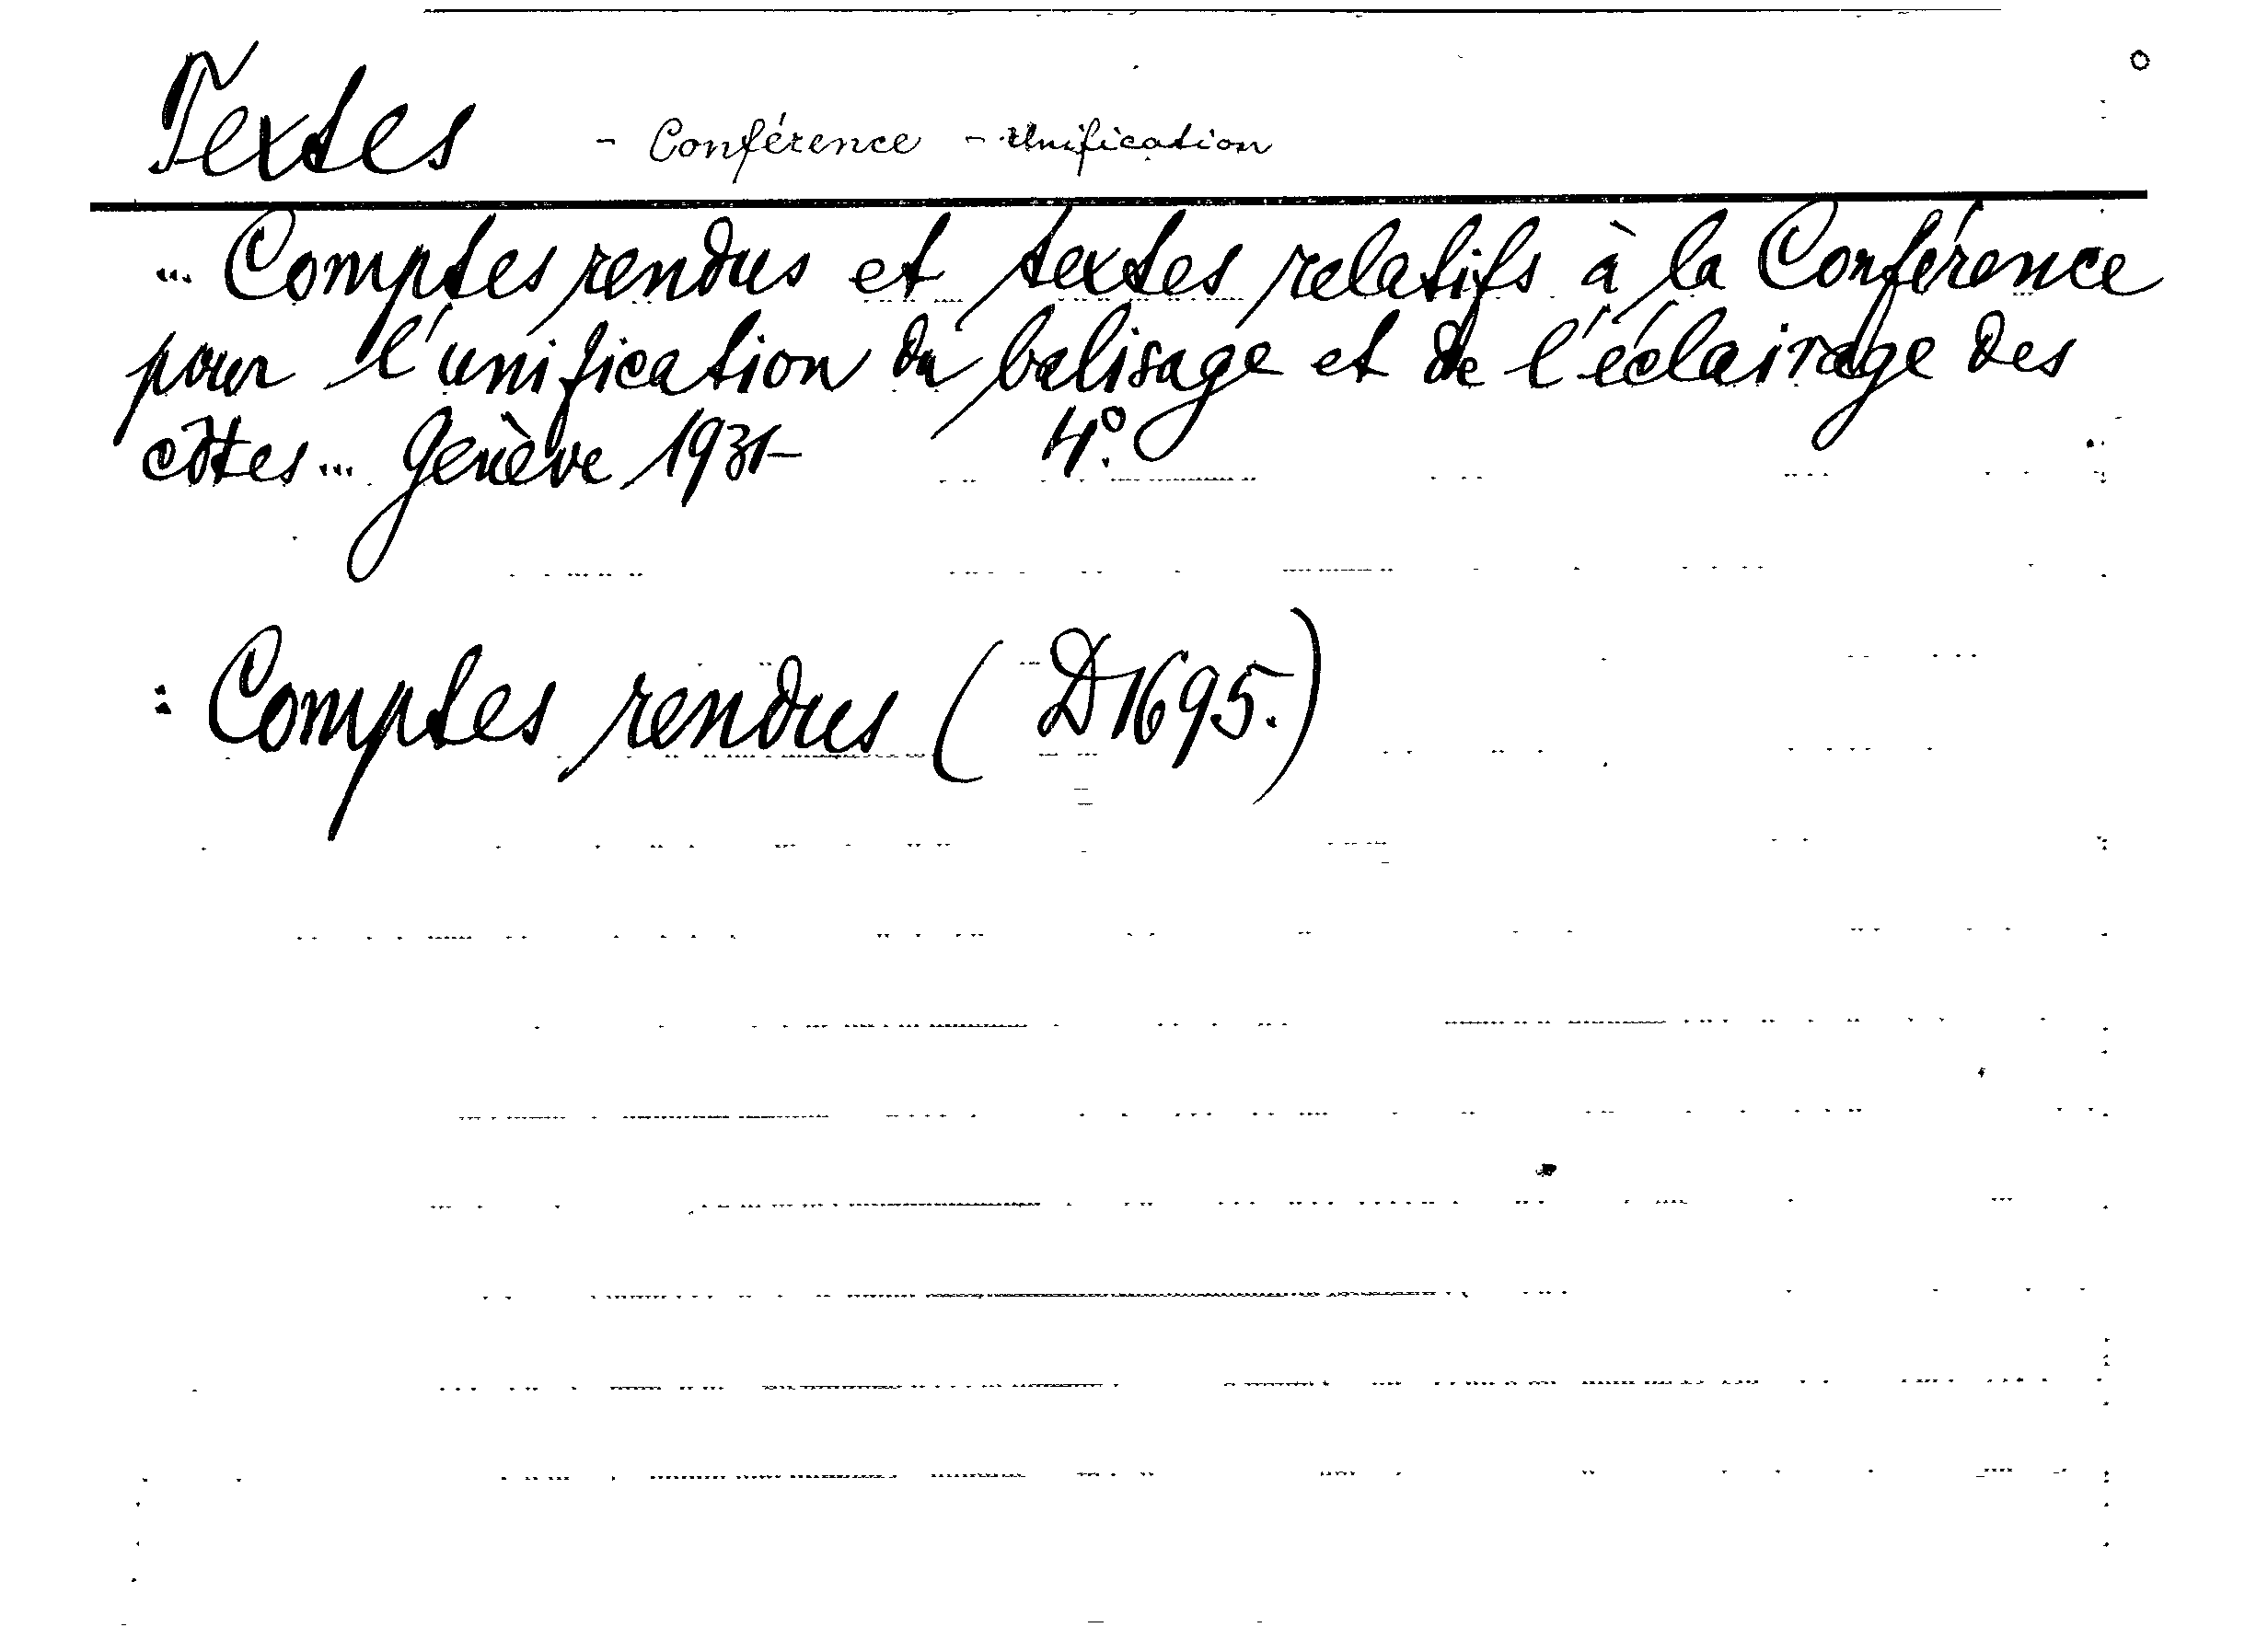 Textes - Conférence - Unification
... Comptes rendus et textes relatifs à la Conférence
pour l'unification du balisage et de l'éclairage des
côtes ... Genève 1931- 4°.
: Comptes rendus ( D1695.)